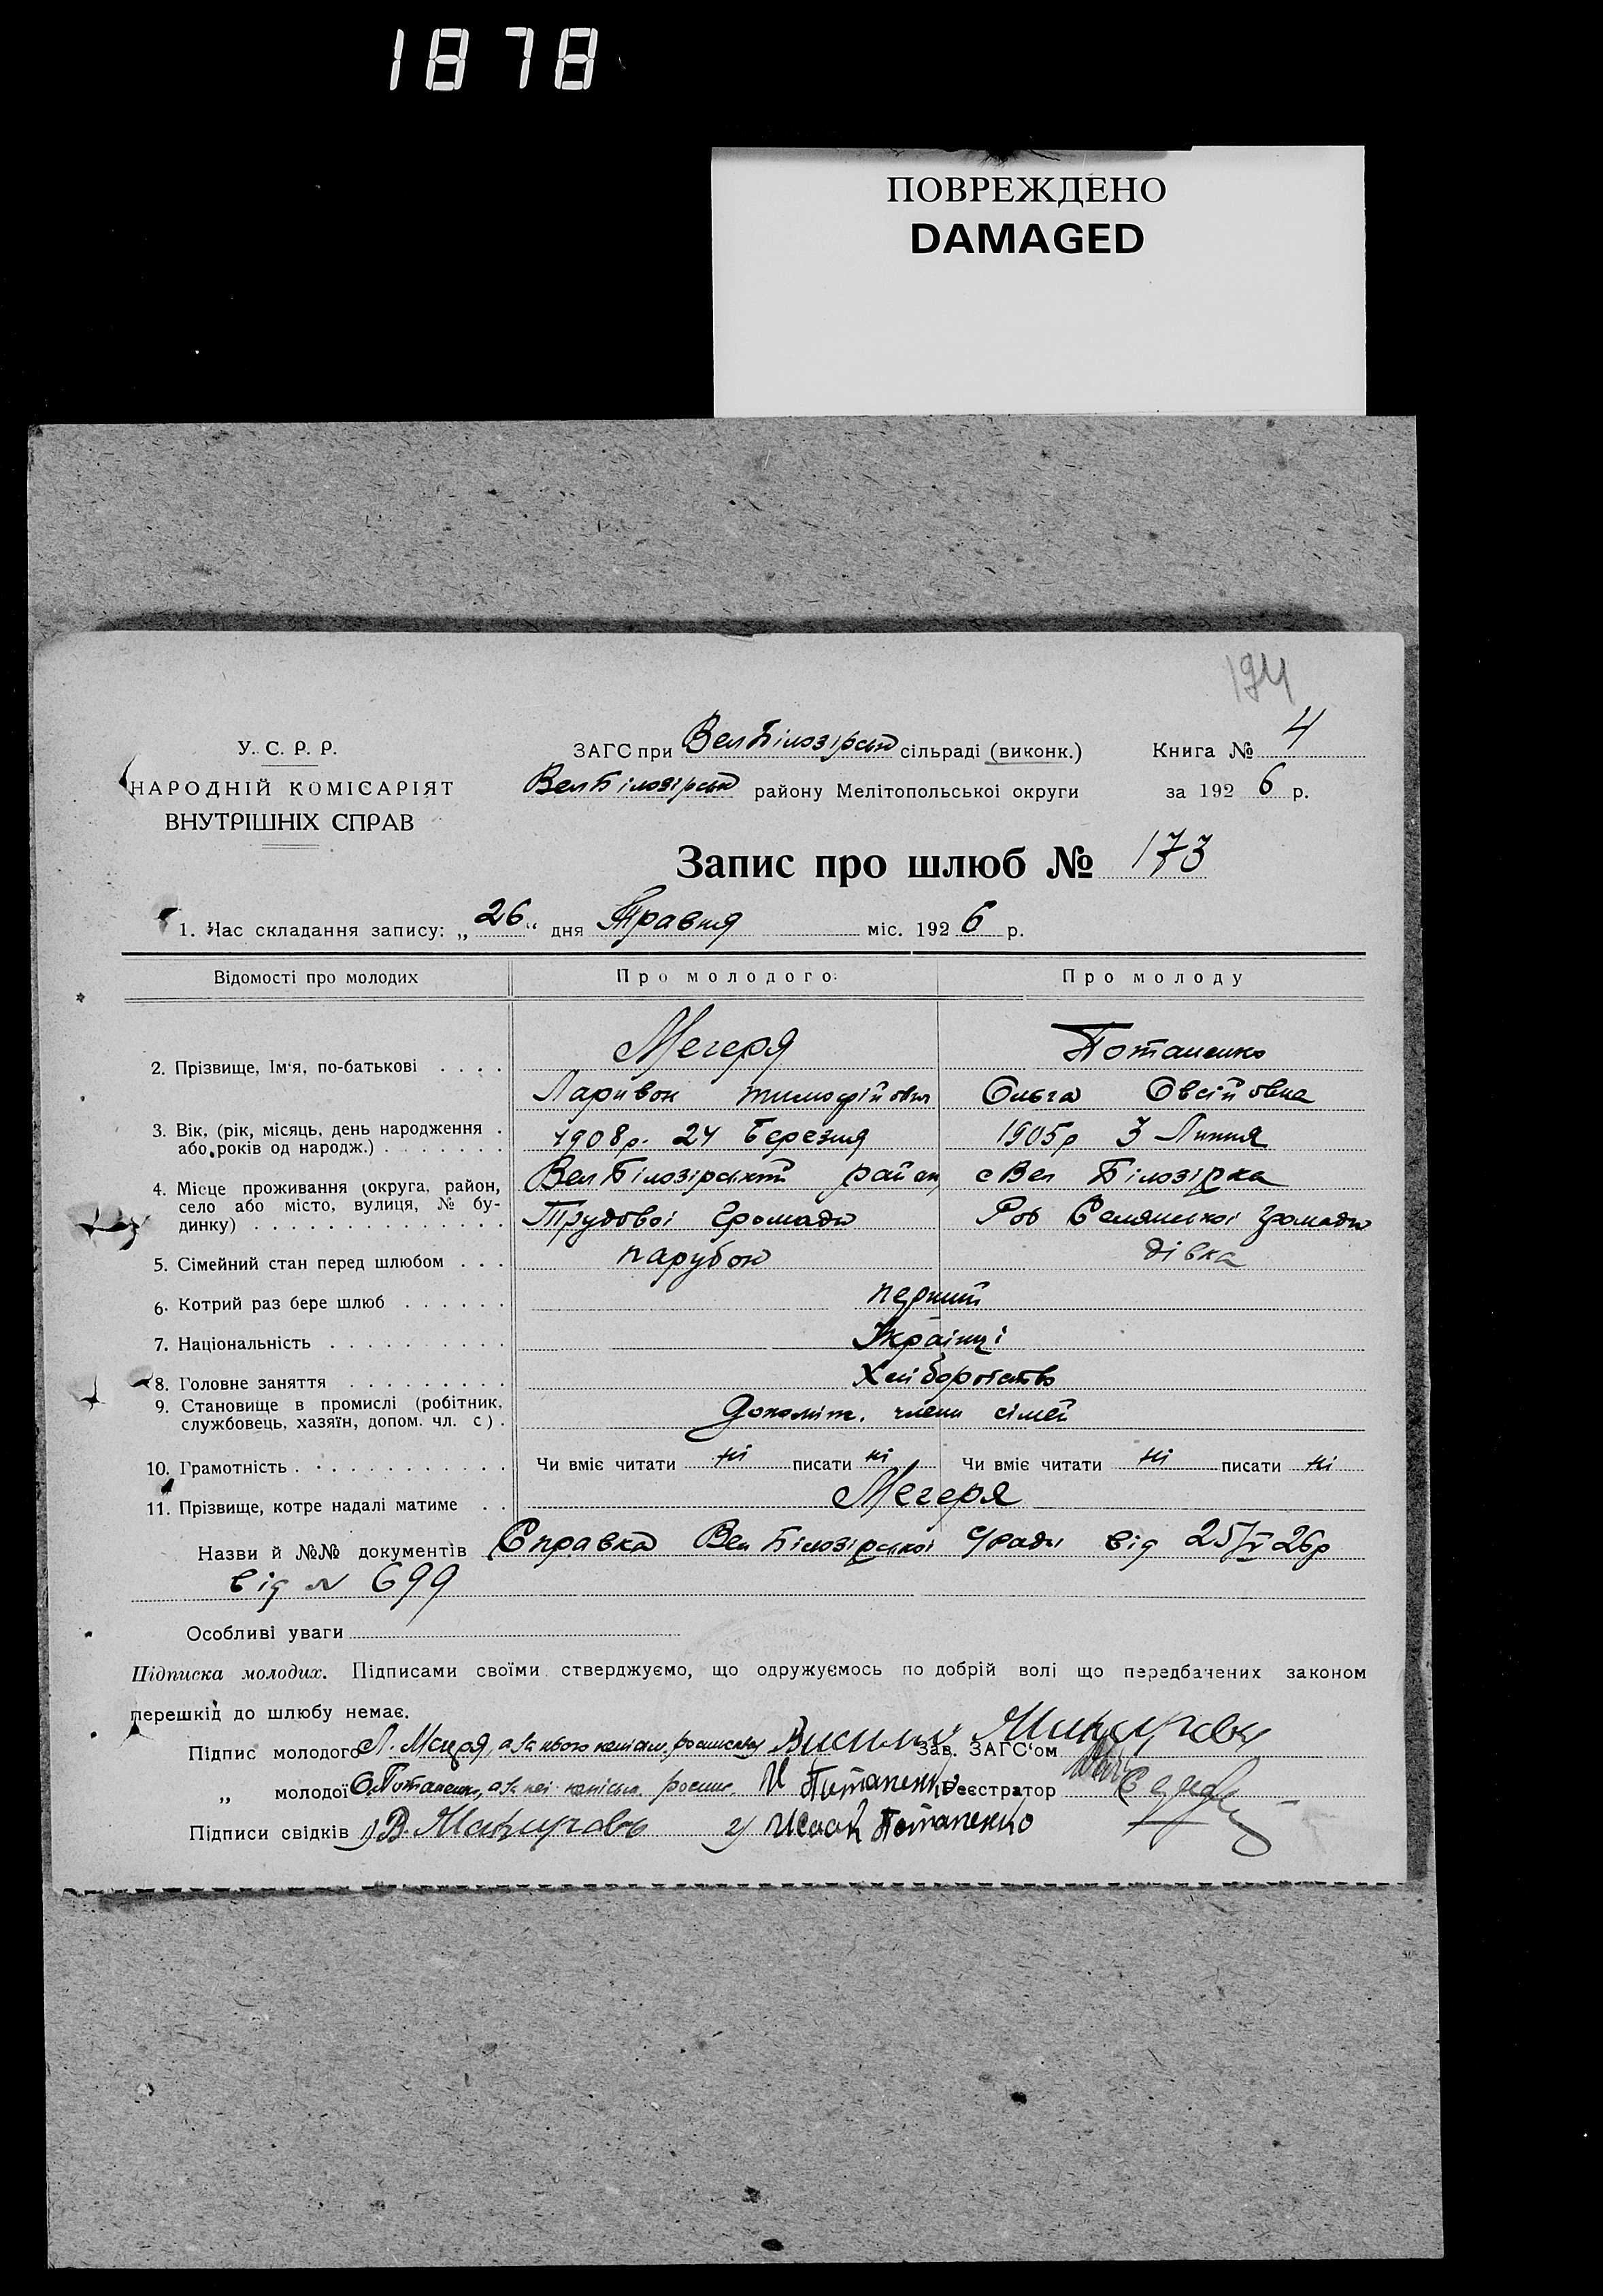 1878
ПОВРЕЖДЕНО
DAMAGED
194
У. С. Р. Р.
НАРОДНІЙ КОМІСАРІЯТ
ВНУТРІШНІХ СПРАВ
ЗАГС при Вел Білозірськ сільраді (виконк.)
Книга № 4
Вел Білозірськ району Мелітопольської округи
за 1926 р.
Запис про шлюб № 173
1. Час складання запису: „26“ дня Травня міс. 1926 р.
Відомості про молодих
Про молодого:
Про молоду
2. Прізвище, Ім‘я, по-батькові . . . .
Мегеря
Потапенко
Ларивон Тимофійович
Ольга Овсійовна
3. Вік, (рік, місяць, день народження .
або років од народж.) . . . . . . .
1908р. 24 Березня
1905р 3 Липня
4. Місце проживання (округа, район,
село або місто, вулиця, № бу-
динку) . . . . . . . . . . . . . .
Вел Білозірський район
с Вел Білозірка
Трудової Громади
Роб Селянської громади
5. Сімейний стан перед шлюбом . . .
парубок
дівка
6. Котрий раз бере шлюб . . . . . .
перший
7. Національність . . . . . . . . . .
Українці
8. Головне заняття . . . . . . . . .
Хліборобство
9. Становище в промислі (робітник,
службовець, хазяїн, допом. чл. с) .
Допоміж. члени сімей
10. Грамотність . . . . . . . . . . . .
Чи вміє читати ні писати ні
Чи вміє читати ні писати ні
11. Прізвище, котре надалі матиме . .
Мегеря
Назви й №№ документів Справка Вел Білозірської с/ради від 25/V 26р
від № 699
Особливі уваги
Підписка молодих. Підписами своїми стверджуємо, що одружуємось по добрій волі що передбачених законом
перешкід до шлюбу немає.
Підпис молодого Л. Мегеря, а за нього
Зав. ЗАГС‘ом
„ молодої О. Потапенко, а за неї И Потапенко
Реєстратор
Підписи свідків 1) В. 2) Исаак Потапенко